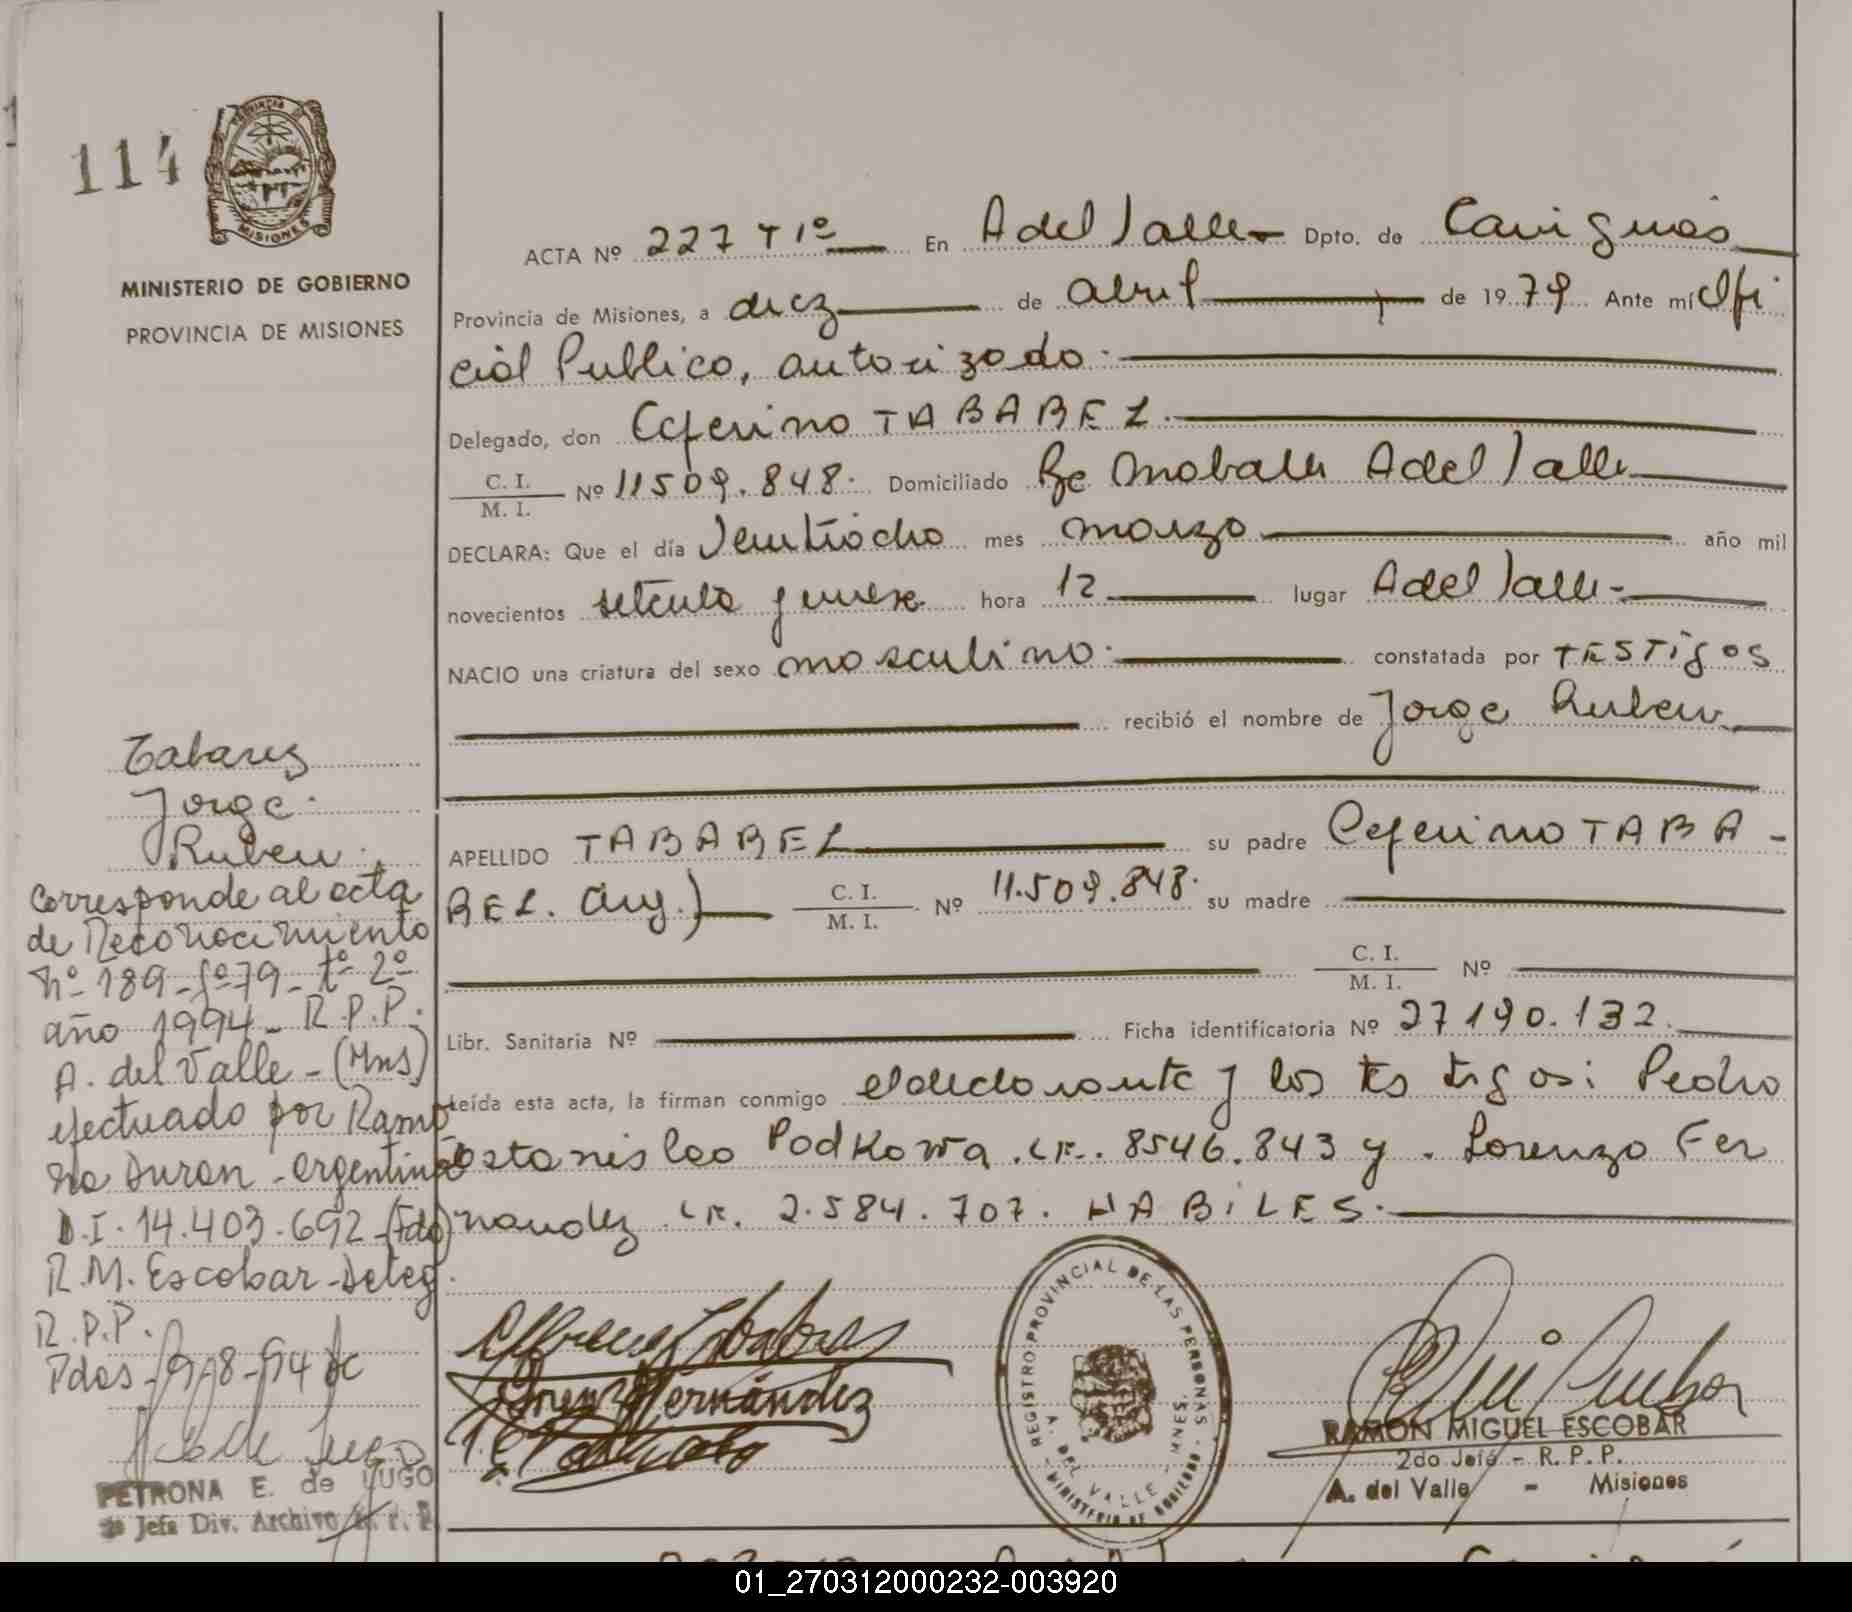 114
PROVINCIA DE
MISIONES
MINISTERIO DE GOBIERNO
PROVINCIA DE MISIONES
ACTA Nº 227 T 1º En A del Valle Dpto. de Cainguás
Provincia de Misiones, a diez de abril de 1979 Ante mí Ofi
cial Publico, autorizado.
Delegado, don Ceferino TABAREZ.
C. I.
M. I. Nº 11509.848. Domiciliado A del Valle
DECLARA: Que el día Veintiocho mes marzo año mil
novecientos setenta y nueve hora 12 lugar A del Valle
NACIO una criatura del sexo masculino. constatada por TESTigos
recibió el nombre de Jorge Ruben
APELLIDO TABAREZ su padre Ceferino TABA-
REZ. Arg.) C. I.
M. I. Nº 11.509.848. su madre
C. I.
M. I. Nº
Libr. Sanitaria Nº Ficha identificatoria Nº 27190.132.
Leída esta acta, la firman conmigo el declarante y los testigos: Pedro
Estanislao Podkowa. LE. 8546.843 y. Lorenzo Fer
nandez LE. 2.584.707. HABiLES.
Tabarez
Jorge
Ruben.
Corresponde al acta
de Reconocimiento
Nº 189-fº79-tº 2º
año 1994- R.P.P.
A. del Valle-(Mns)
efectuado por Ramo
na Duran-argentina
D.I. 14.403.692-(Fdo)
R.M. Escobar-Deleg.
R.P.P.
Pdas-9-8-94
PETRONA E. de LUGO
Jefa Div. Archivo R. P. P.
Lorenzo Fernández
REGISTRO PROVINCIAL DE LAS PERSONAS
A. DEL VALLE - MNES.
MINISTERIO DE GOBIERNO
RAMON MIGUEL ESCOBAR
2do Jefe - R. P. P.
A. del Valle - Misiones
01_270312000232-003920